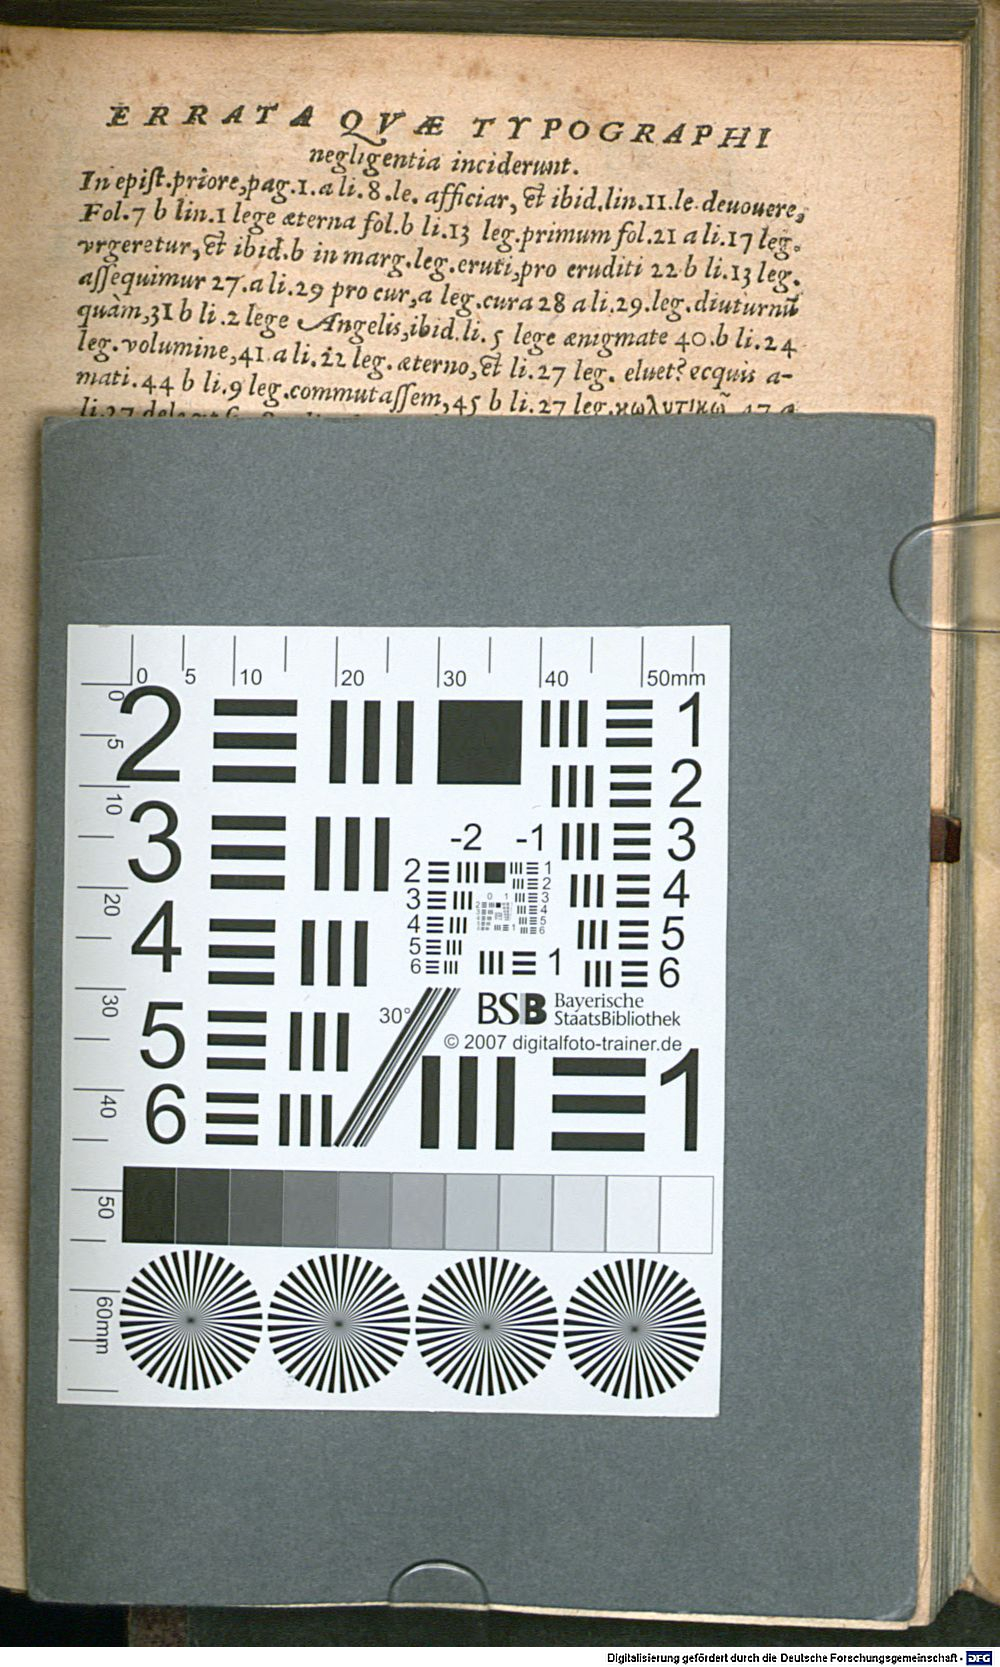 ERRATA QVÆ TYPOGRAPHI
negligentia inciderunt.
In epiſt.priore,pag.1.a li.8.le. afficiar, & ibid.lin.11.le.deuouere,
Fol.7 b lin.1 lege æterna fol.b li.13 leg.primum fol.21 a li.17 leg.
vrgeretur,& ibid.b in marg.leg.eruti,pro eruditi 22 b li.13 leg.
aſſequimur 27.a li.29 pro cur,a leg.cura 28 a li.29.leg.diuturnũ
quàm,31 b li.2 lege Angelis,ibid.li.5 lege ænigmate 40.b li.24
leg.volumine,41.a li.22 leg. æterno,& li.27 leg. eluet? ecquis a-
mati.44 b li.9 leg.commutaſſem,45 b li.27 leg.κωλυτικῶ 47 a
li.27
0 5 10 20 30 40 50mm
0 5 10 20 30 40 50 60mm
2 1
2
3 -2 -1 3
2 1
2
3 0 1 3
4 4 4
4 5 5 5
6 6 1 6
30° BSB Bayerische
StaatsBibliothek
5 © 2007 digitalfoto-trainer.de
6 1
Digitalisierung gefördert durch die Deutsche Forschungsgemeinschaft - DFG